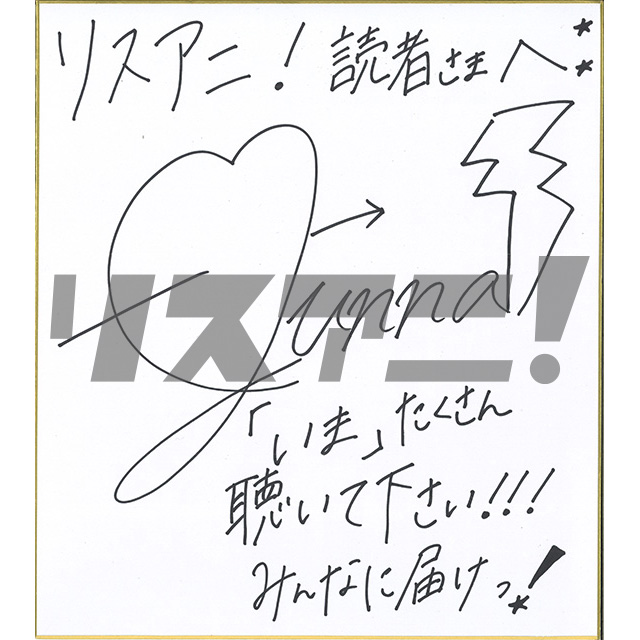 リスアニ！読者さまへ
Junna
リスアニ！
「いま」たくさん
聴いて下さい!!!
みんなに届けっ！